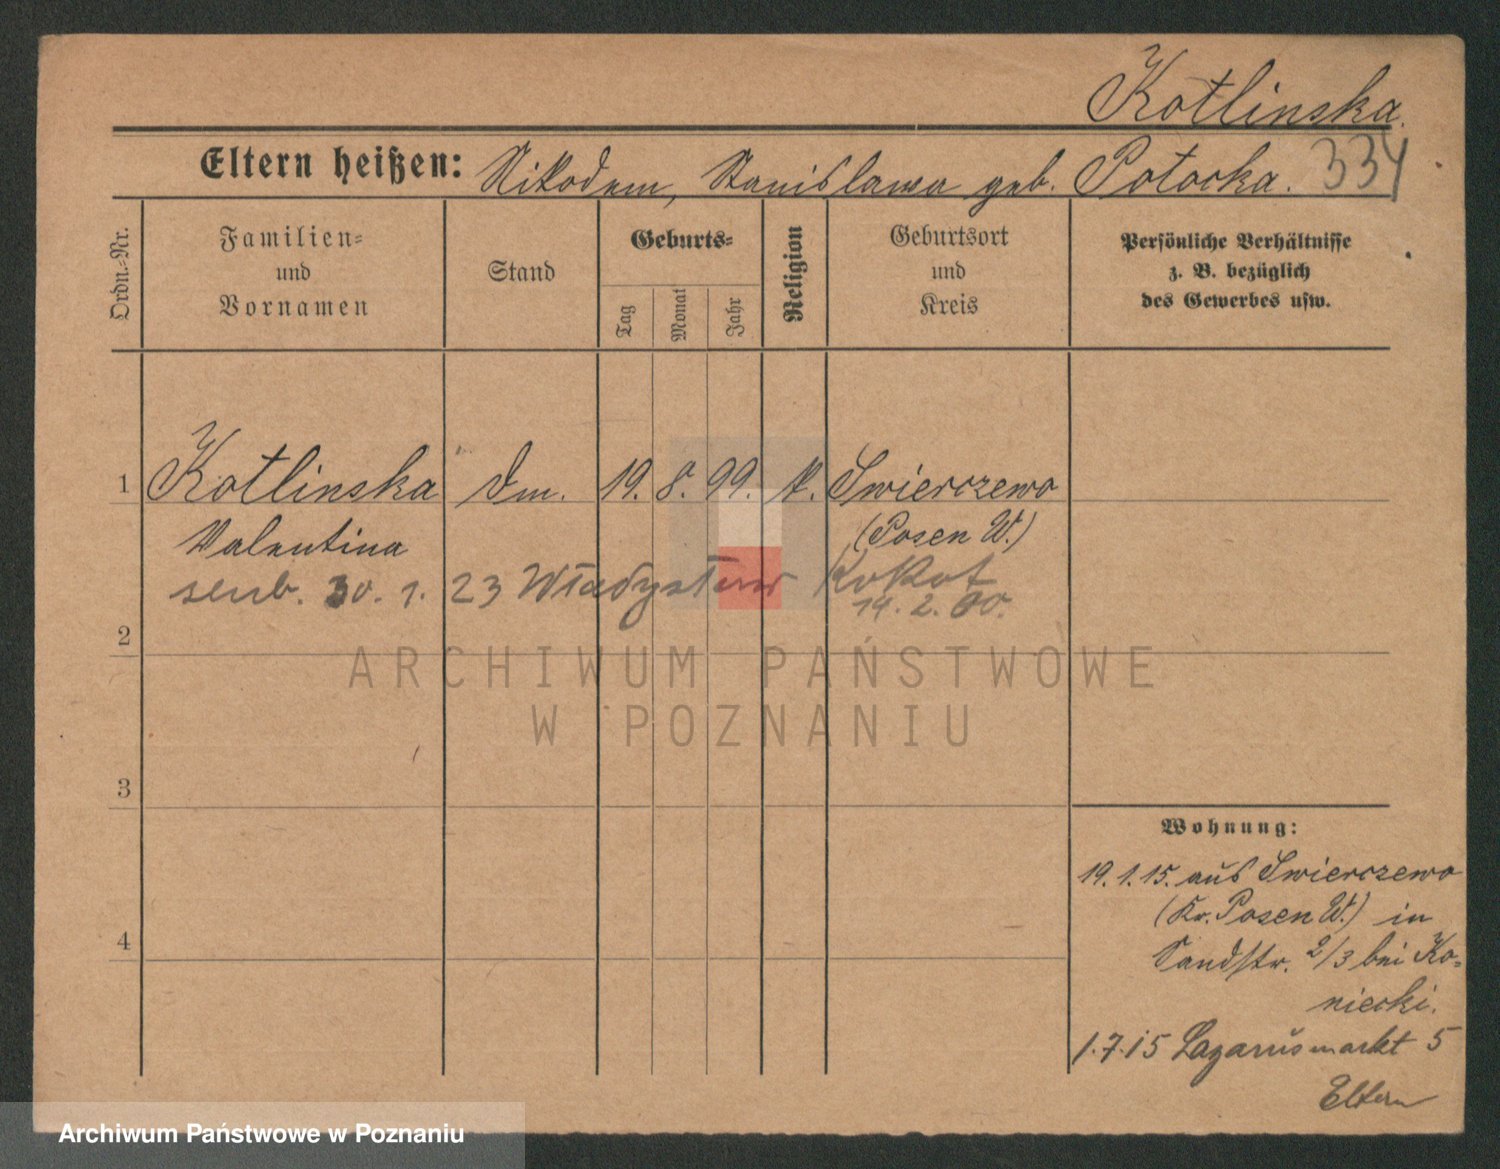 Kotlinska.
Eltern heißen: Nikodem, Stanislawa geb. Potocka. 334
Ordn.-Nr.
Familien-
und
Vornamen
Stand
Geburts-
Tag
Monat
Jahr
Religion
Geburtsort
und
Kreis
Persönliche Verhältnisse
z. B. bezüglich
des Gewerbes usw.
1 Kotlinska Dm. 19. 8. 99. k. Swierczewo
Valentina (Posen W.)
senb. 30. 1. 23 Władysław Kokot
14. 2. 00.
2
ARCHIWUM PAŃSTWOWE
W POZNANIU
3
4
Wohnung:
19.1.15. aus Swierczewo
(Kr. Posen W.) in
Sandstr. 2/3 bei Ko-
niecki.
1.7.15 Lazarusmarkt 5
Eltern
Archiwum Państwowe w Poznaniu